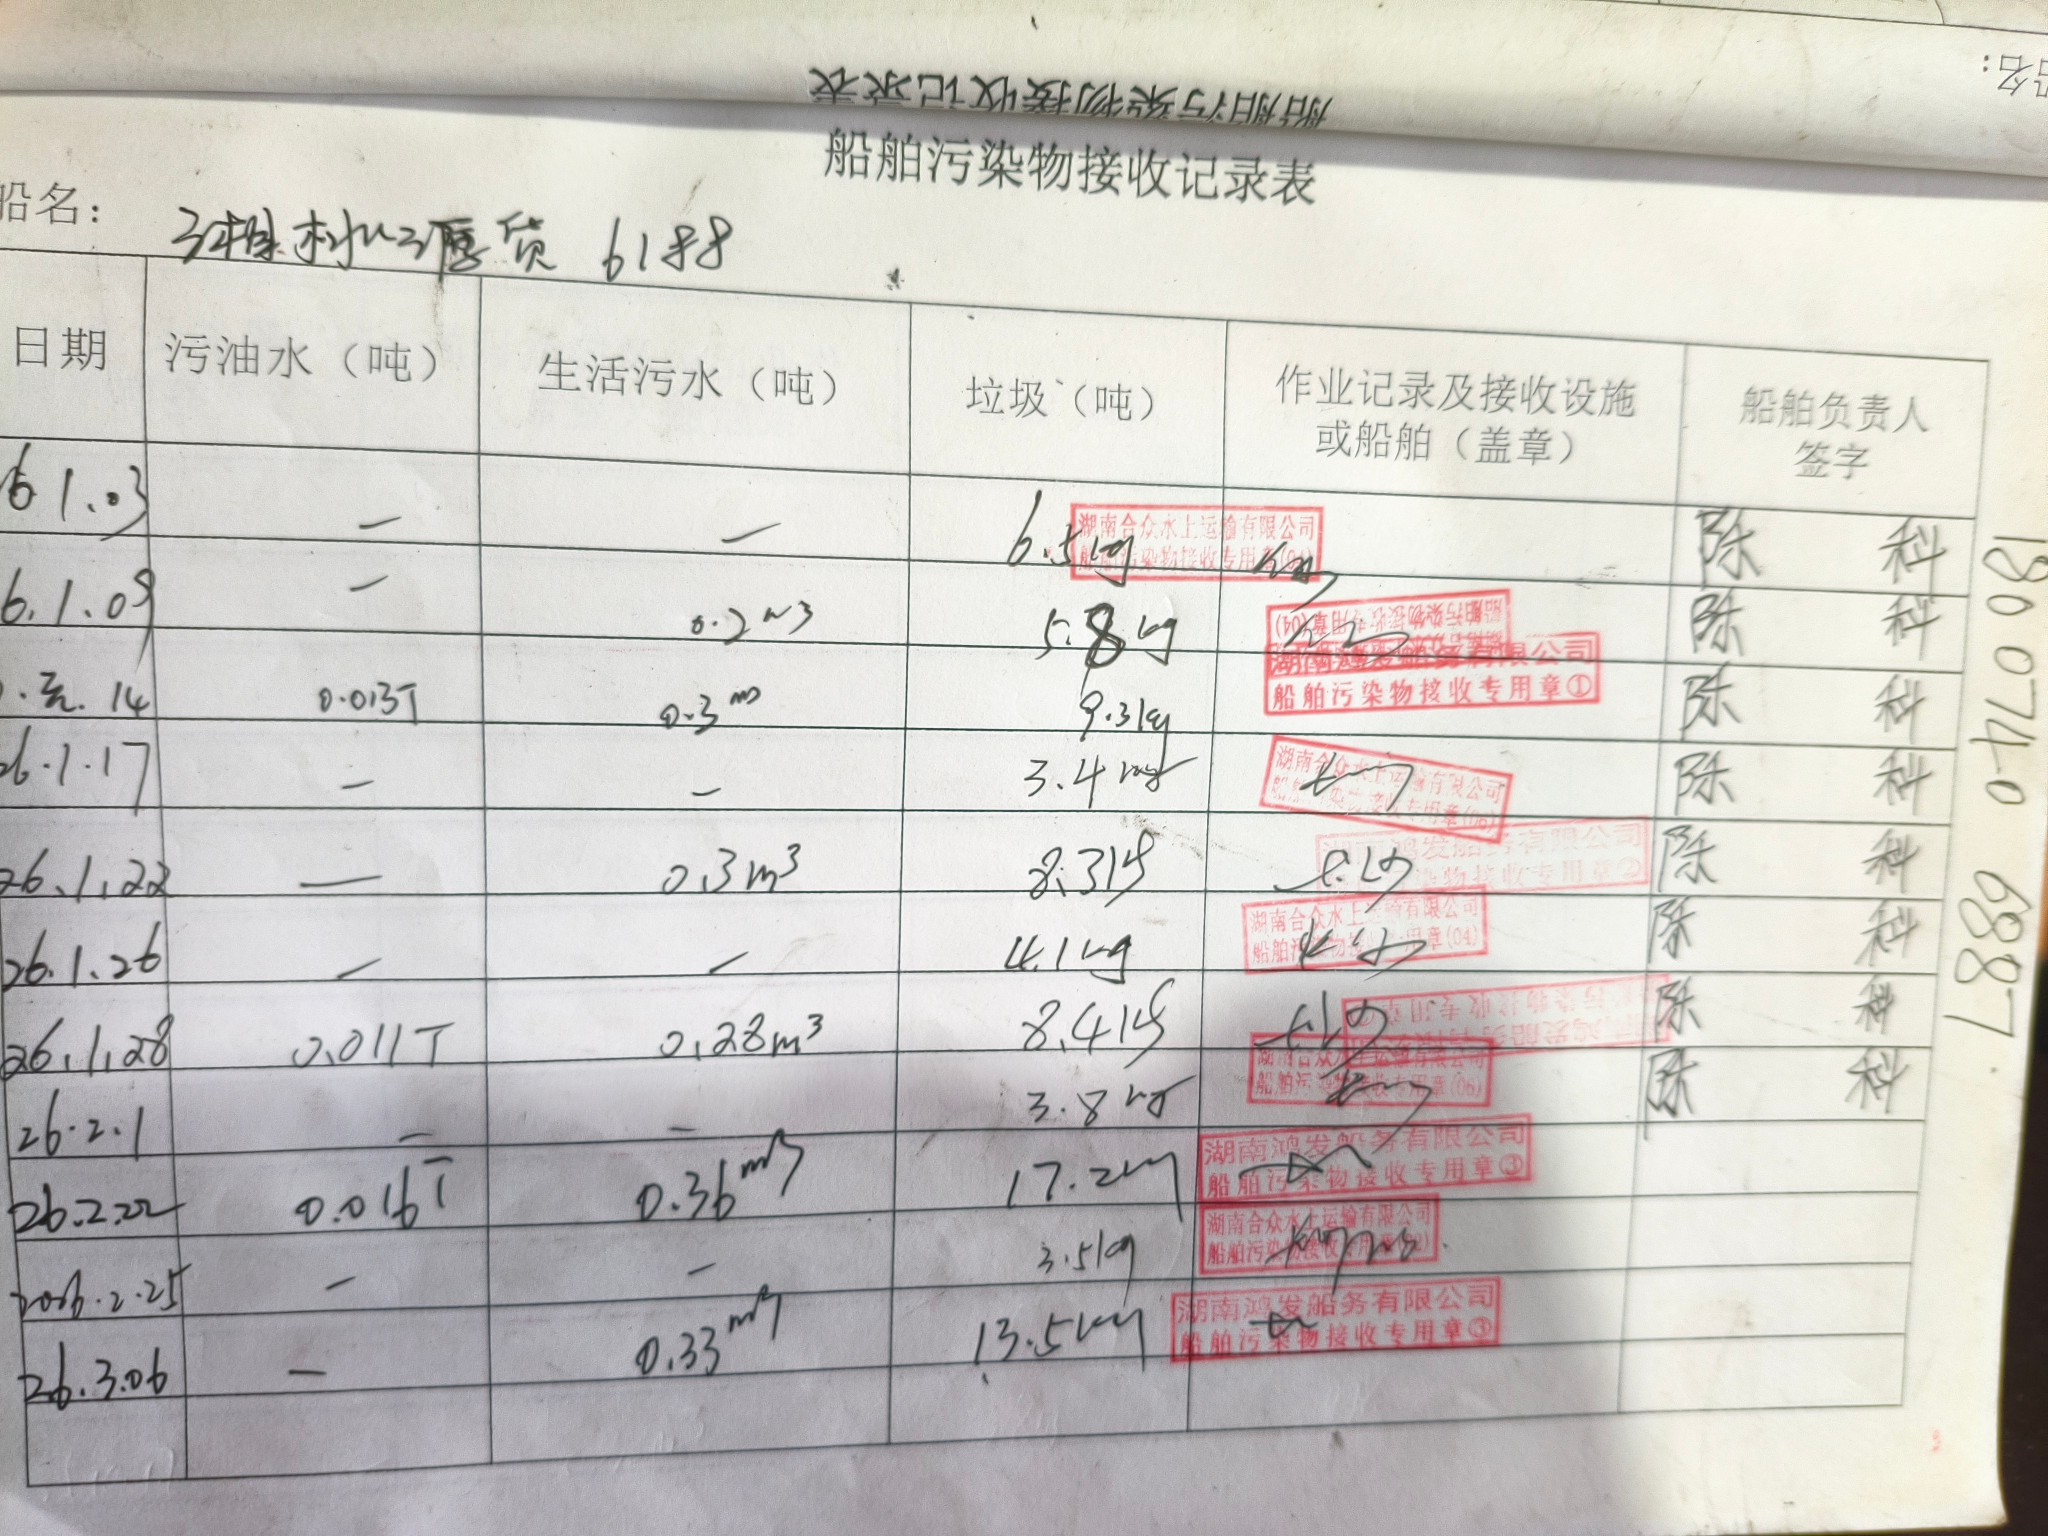 船舶污染物接收记录表
船名：
船舶污染物接收记录表
船名： 货 6188
日期 污油水（吨） 生活污水（吨） 垃圾（吨） 作业记录及接收设施或船舶（盖章） 船舶负责人签字
6 1.03 — — 6.5kg 湖南合众水上运输有限公司 船舶污染物接收专用章(04) 陈 科
6.1.09 — 0.2m3 5.8kg 船舶污染物接收专用章(04) 陈 科
.元.14 0.013T 0.3m3 9.3kg 船舶污染物接收专用章① 陈 科
26.1.17 — — 3.4kg 湖南合众水上运输有限公司 船舶污染物接收专用章(06) 陈 科
26.1.22 — 0.3m3 8.3kg 湖南鸿发船务有限公司 污染物接收专用章② 陈 科
26.1.26 — — 4.1kg 湖南合众水上运输有限公司 船舶污染物接收专用章(04) 陈 科
26.1.28 0.011T 0.28m3 8.4kg 陈 科
26.2.1 — — 3.8kg 湖南合众水上运输有限公司 船舶污染物接收专用章(06) 陈 科
26.2.22 0.016T 0.36m3 17.2kg 湖南鸿发船务有限公司 船舶污染物接收专用章③
2026.2.25 — — 3.5kg 湖南合众水上运输有限公司 船舶污染物接收专用章
26.3.06 — 0.33m3 13.5kg 湖南鸿发船务有限公司 船舶污染物接收专用章③
180 0740 6887